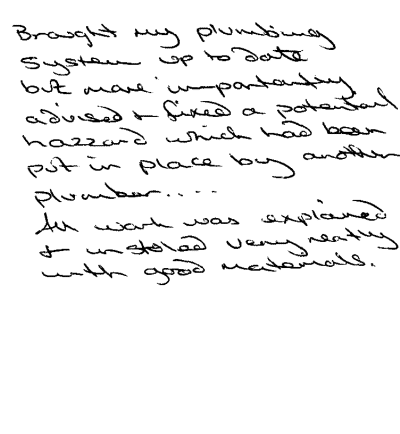 Brought my plumbing
system up to date
but more importantly
advised & fixed a potential
hazzard which had been
put in place by another
plumber....
All work was explained
& instaled very neatly
with good materials.